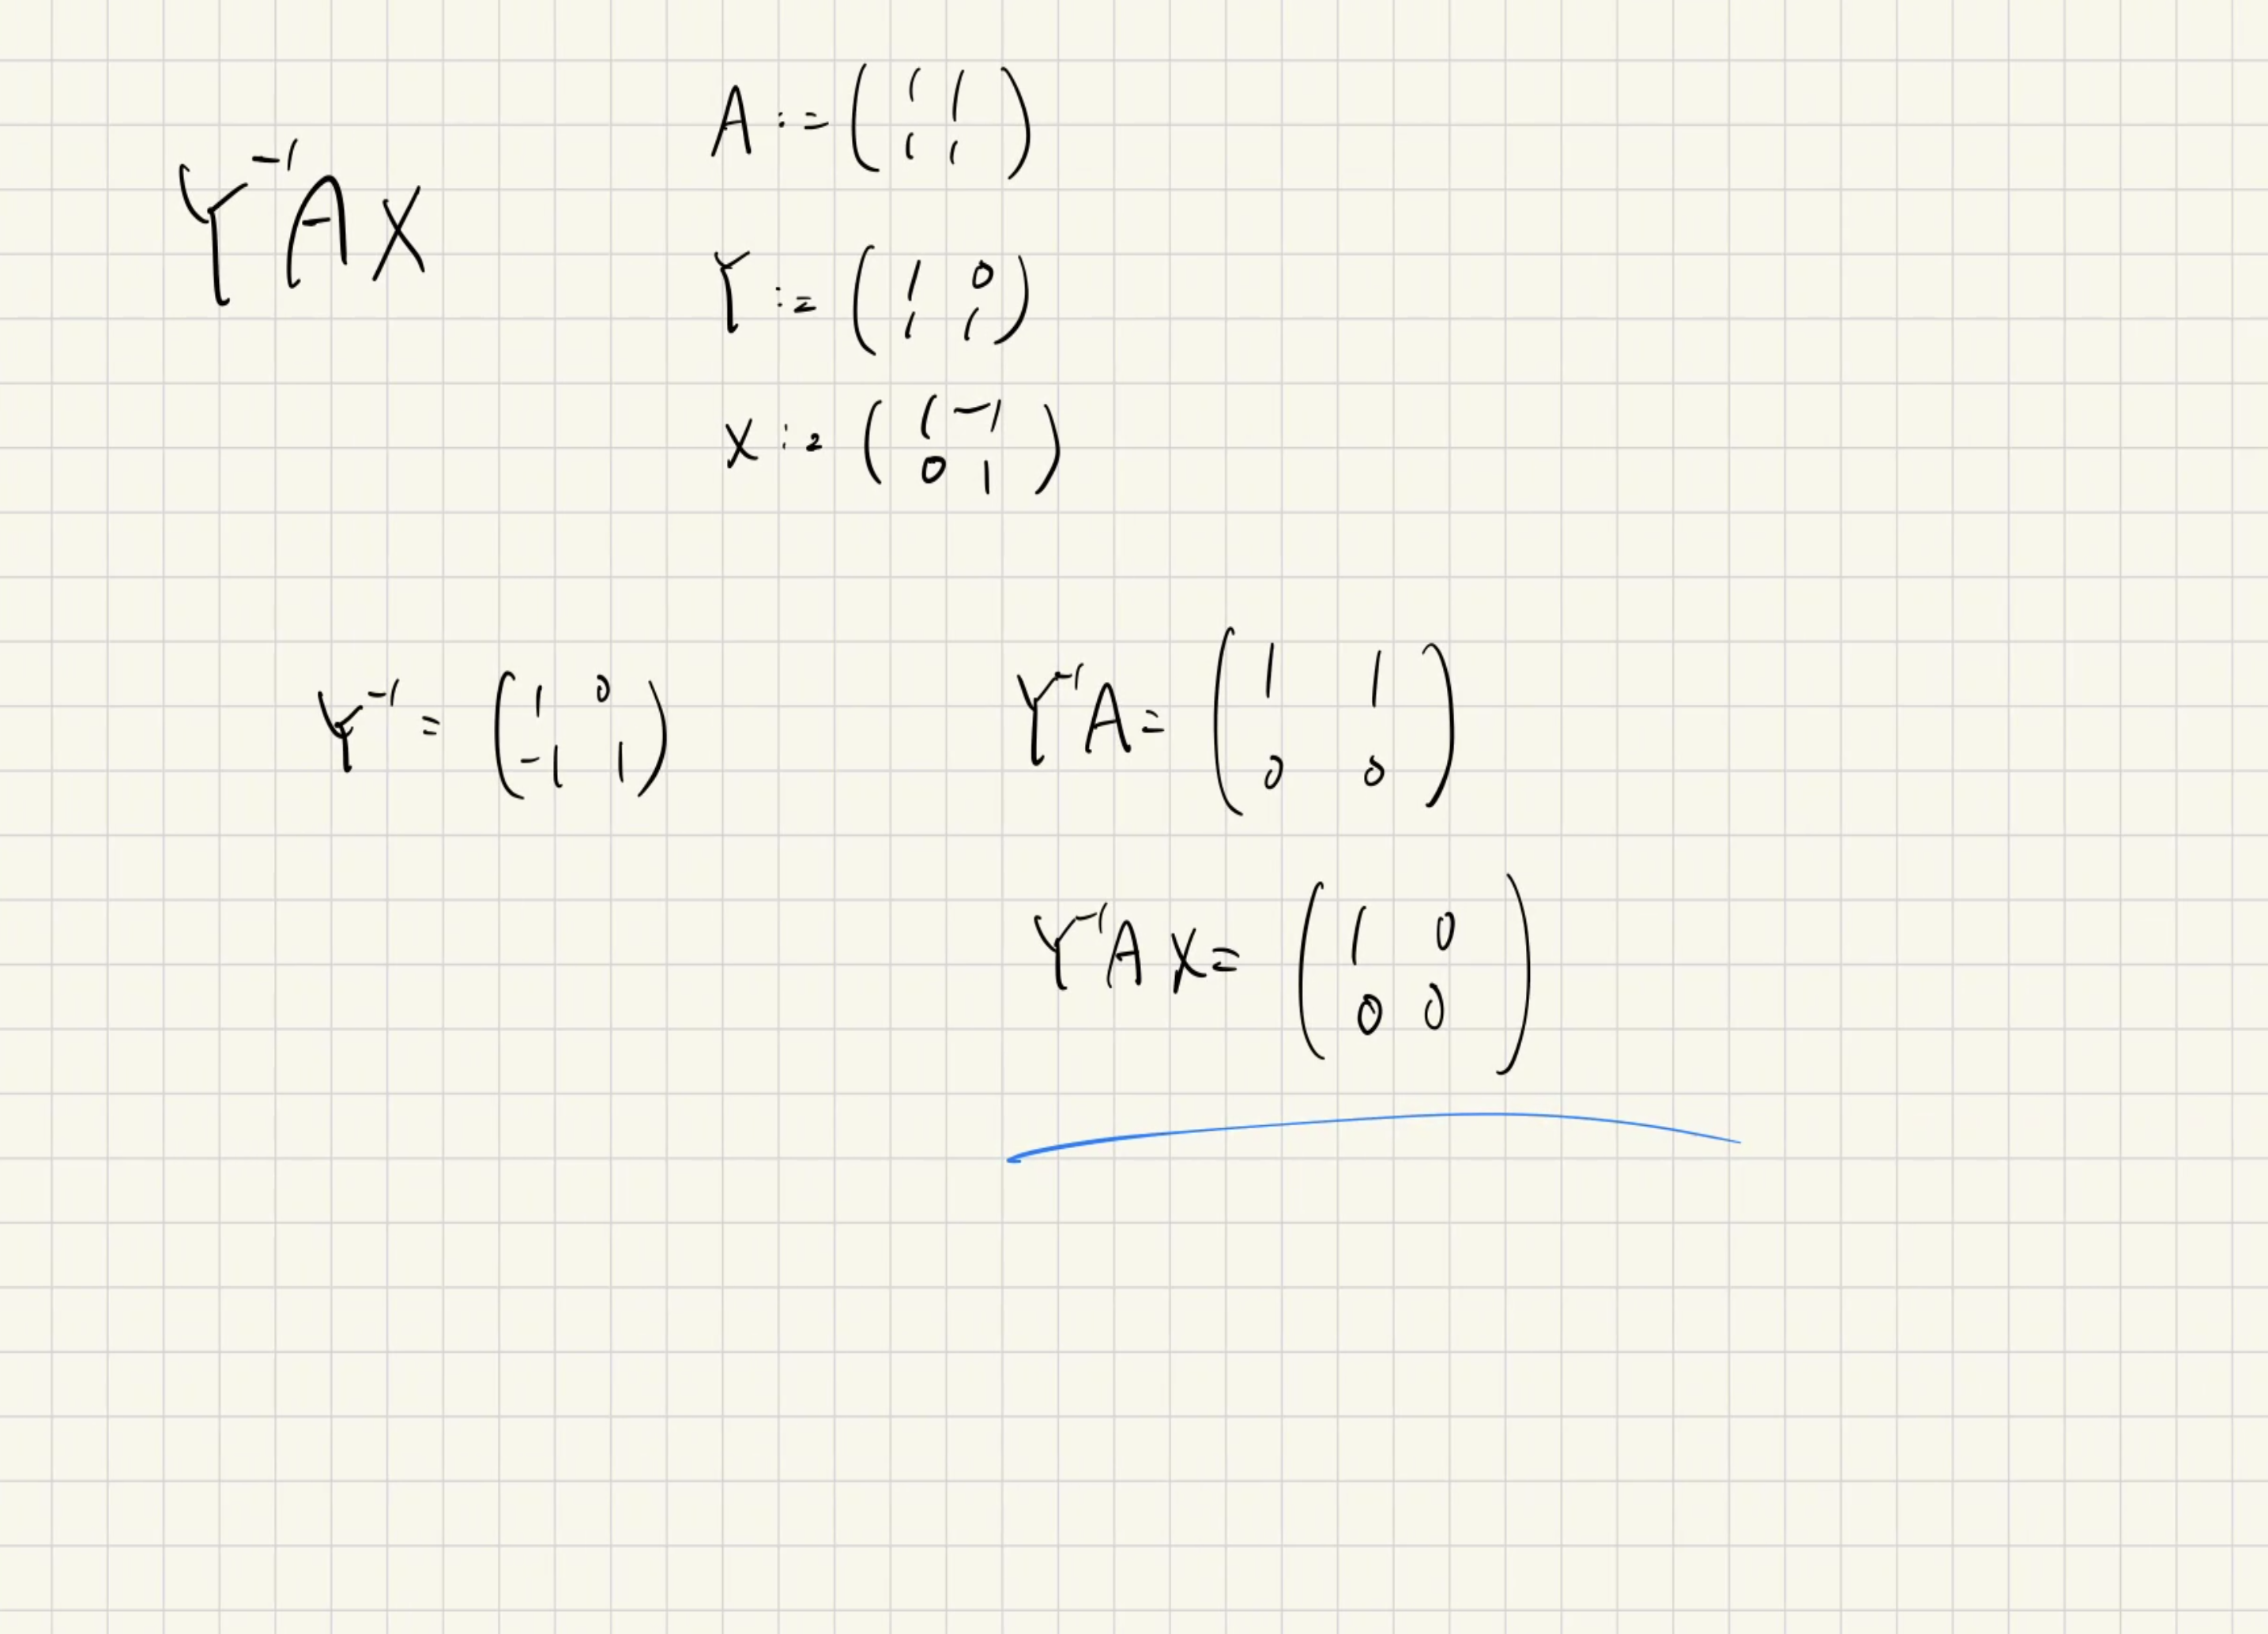 Y⁻¹AX
A := ( 1 1
1 1 )
Y := ( 1 0
1 1 )
X := ( 1 -1
0 1 )
Y⁻¹ = ( 1 0
-1 1 )
Y⁻¹A = ( 1 1
0 0 )
Y⁻¹AX = ( 1 0
0 0 )